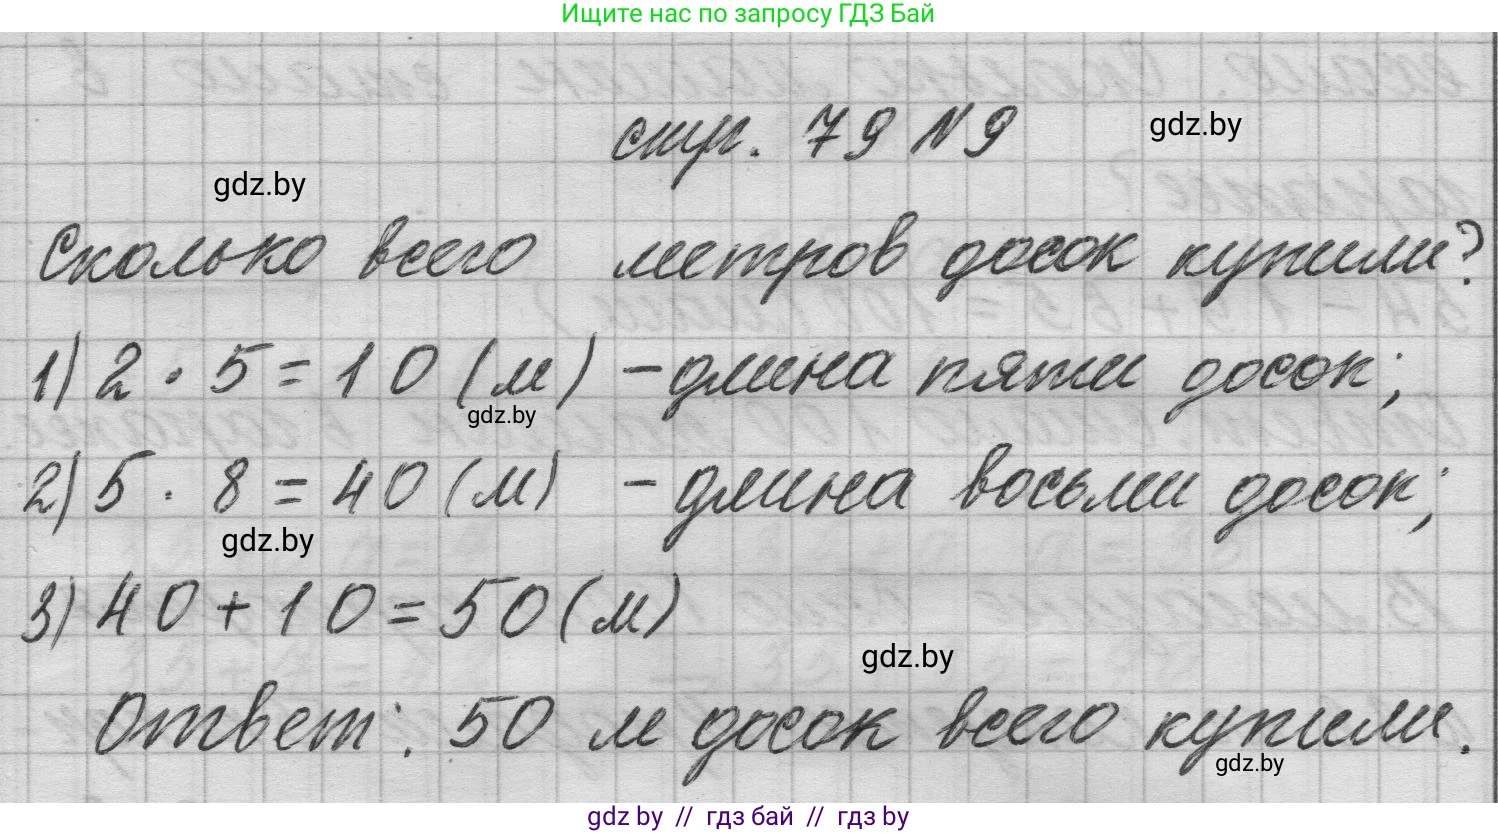 Ищите нас по запросу ГДЗ Бай
стр. 79 N 9
gdz.by
gdz.by
Сколько всего метров досок купили?
1) 2 · 5 = 10 (м) – длина пяти досок;
gdz.by
2) 5 · 8 = 40 (м) – длина восьми досок;
gdz.by
3) 40 + 10 = 50 (м)
gdz.by
Ответ: 50 м досок всего купили.
gdz.by
gdz by // гдз бай // гдз by